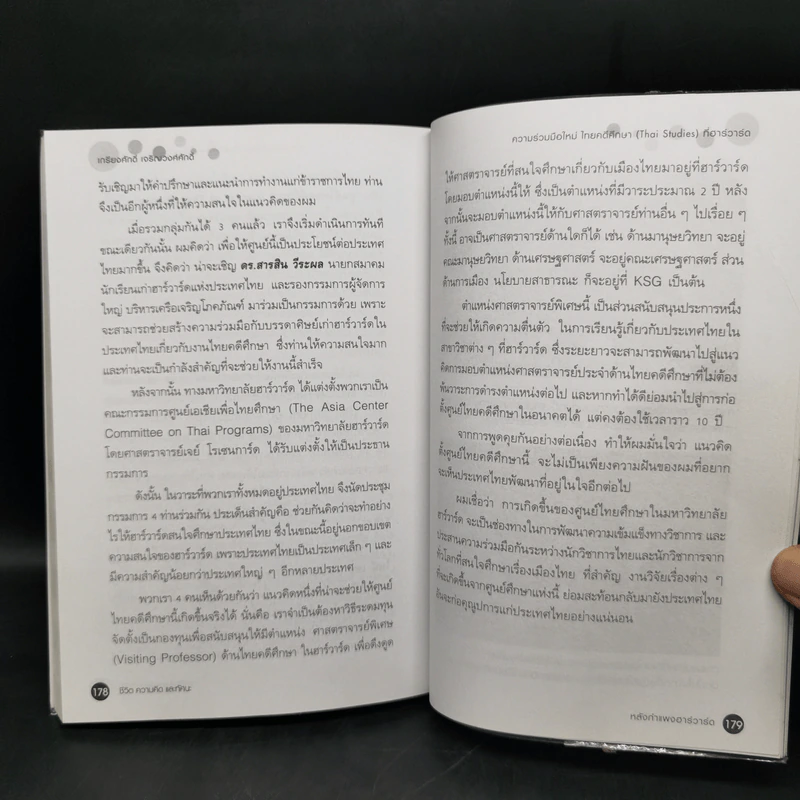 เกรียงศักดิ์ เจริญวงศ์ศักดิ์
รับเชิญมาให้คำปรึกษาและแนะนำการทำงานแก่ข้าราชการไทย ท่าน
จึงเป็นอีกผู้หนึ่งที่ให้ความสนใจในแนวคิดของผม
เมื่อรวมกลุ่มกันได้ 3 คนแล้ว เราจึงเริ่มดำเนินการทันที
ขณะเดียวกันนั้น ผมคิดว่า เพื่อให้ศูนย์นี้เป็นประโยชน์ต่อประเทศ
ไทยมากขึ้น จึงคิดว่า น่าจะเชิญ ดร.สารสิน วีระผล นายกสมาคม
นักเรียนเก่าฮาร์วาร์ดแห่งประเทศไทย และรองกรรมการผู้จัดการ
ใหญ่ บริหารเครือเจริญโภคภัณฑ์ มาร่วมเป็นกรรมการด้วย เพราะ
จะสามารถช่วยสร้างความร่วมมือกับบรรดาศิษย์เก่าฮาร์วาร์ดใน
ประเทศไทยเกี่ยวกับงานไทยคดีศึกษา ซึ่งท่านให้ความสนใจมาก
และท่านจะเป็นกำลังสำคัญที่จะช่วยให้งานนี้สำเร็จ
หลังจากนั้น ทางมหาวิทยาลัยฮาร์วาร์ด ได้แต่งตั้งพวกเราเป็น
คณะกรรมการศูนย์เอเชียเพื่อไทยศึกษา (The Asia Center
Committee on Thai Programs) ของมหาวิทยาลัยฮาร์วาร์ด
โดยศาสตราจารย์เจย์ โรเซนการ์ด ได้รับแต่งตั้งให้เป็นประธาน
กรรมการ
ดังนั้น ในวาระที่พวกเราทั้งหมดอยู่ประเทศไทย จึงนัดประชุม
กรรมการ 4 ท่านร่วมกัน ประเด็นสำคัญคือ ช่วยกันคิดว่าจะทำอย่าง
ไรให้ฮาร์วาร์ดสนใจศึกษาประเทศไทย ซึ่งในขณะนี้อยู่นอกขอบเขต
ความสนใจของฮาร์วาร์ด เพราะประเทศไทยเป็นประเทศเล็ก ๆ และ
มีความสำคัญน้อยกว่าประเทศใหญ่ ๆ อีกหลายประเทศ
พวกเรา 4 คนเห็นด้วยกันว่า แนวคิดหนึ่งที่น่าจะช่วยให้ศูนย์
ไทยคดีศึกษานี้เกิดขึ้นจริงได้ นั่นคือ เราจำเป็นต้องหาวิธีระดมทุน
จัดตั้งเป็นกองทุนเพื่อสนับสนุนให้มีตำแหน่ง ศาสตราจารย์พิเศษ
(Visiting Professor) ด้านไทยคดีศึกษา ในฮาร์วาร์ด เพื่อดึงดูด
178 ชีวิต ความคิด และทัศนะ
ความร่วมมือใหม่ ไทยคดีศึกษา (Thai Studies) ที่ฮาร์วาร์ด
ให้ศาสตราจารย์ที่สนใจศึกษาเกี่ยวกับเมืองไทยมาอยู่ที่ฮาร์วาร์ด
โดยมอบตำแหน่งนี้ให้ ซึ่งเป็นตำแหน่งที่มีวาระประมาณ 2 ปี หลัง
จากนั้นจะมอบตำแหน่งนี้ให้กับศาสตราจารย์ท่านอื่น ๆ ไปเรื่อย ๆ
ทั้งนี้ อาจเป็นศาสตราจารย์ด้านใดก็ได้ เช่น ด้านมานุษยวิทยา จะอยู่
คณะมานุษยวิทยา ด้านเศรษฐศาสตร์ จะอยู่คณะเศรษฐศาสตร์ ส่วน
ด้านการเมือง นโยบายสาธารณะ ก็จะอยู่ที่ KSG เป็นต้น
ตำแหน่งศาสตราจารย์พิเศษนี้ เป็นส่วนสนับสนุนประการหนึ่ง
ที่จะช่วยให้เกิดความตื่นตัว ในการเรียนรู้เกี่ยวกับประเทศไทยใน
สาขาวิชาต่าง ๆ ที่ฮาร์วาร์ด ซึ่งระยะยาวจะสามารถพัฒนาไปสู่แนว
คิดการมอบตำแหน่งศาสตราจารย์ประจำด้านไทยคดีศึกษาที่ไม่ต้อง
พ้นวาระการดำรงตำแหน่งต่อไป และหากทำได้ดีย่อมนำไปสู่การก่อ
ตั้งศูนย์ไทยคดีศึกษาในอนาคตได้ แต่คงต้องใช้เวลาราว 10 ปี
จากการพูดคุยกันอย่างต่อเนื่อง ทำให้ผมมั่นใจว่า แนวคิด
ตั้งศูนย์ไทยคดีศึกษานี้ จะไม่เป็นเพียงความฝันของผมที่อยาก
จะเห็นประเทศไทยพัฒนาที่อยู่ในใจอีกต่อไป
ผมเชื่อว่า การเกิดขึ้นของศูนย์ไทยศึกษาในมหาวิทยาลัย
ฮาร์วาร์ด จะเป็นช่องทางในการพัฒนาความเข้มแข็งทางวิชาการ และ
ประสานความร่วมมือกันระหว่างนักวิชาการไทยและนักวิชาการจาก
ทั่วโลกที่สนใจศึกษาเรื่องเมืองไทย ที่สำคัญ งานวิจัยเรื่องต่าง ๆ
ที่จะเกิดขึ้นจากศูนย์ศึกษาแห่งนี้ ย่อมสะท้อนกลับมายังประเทศไทย
อันจะก่อคุณูปการแก่ประเทศไทยอย่างแน่นอน
หลังกำแพงฮาร์วาร์ด 179